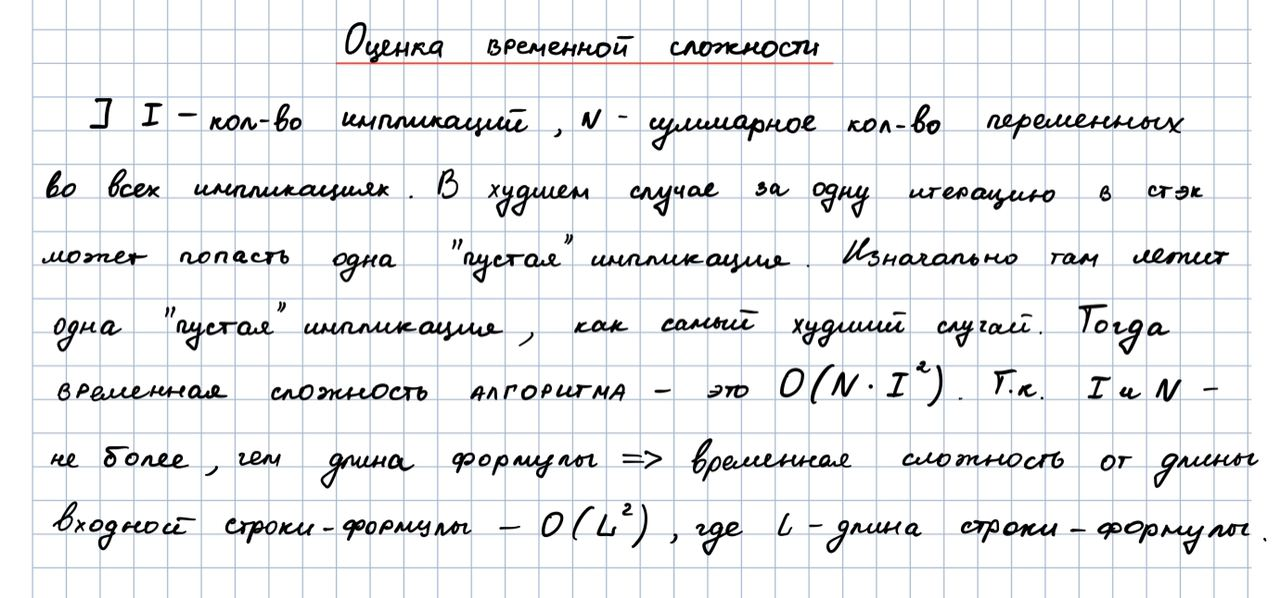 Оценка временной сложности
] I - кол-во импликаций, N - суммарное кол-во переменных
во всех импликациях. В худшем случае за одну итерацию в стэк
может попасть одна "пустая" импликация. Изначально там лежит
одна "пустая" импликация, как самый худший случай. Тогда
временная сложность алгоритма - это O(N · I²). Т.к. I и N -
не более, чем длина формулы => временная сложность от длины
входной строки-формулы - O(L²), где L - длина строки-формулы.